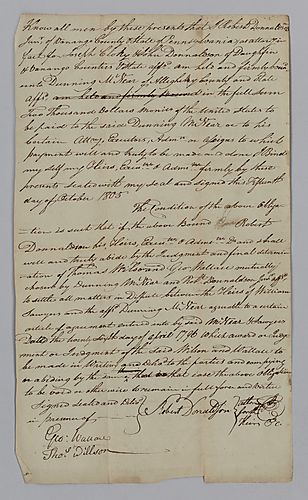 Know all men by these presents that I Robert Donnaldson
Junr. of Venango County & State of Pennsylvania as attorney in
fact for Joseph & John Donnaldson of Dauphin
& Venango Counties & State affd. am held and firmly bound
unto Dunning McNear of Allegheny County and State
affd. am held and firmly bound in the full Sum
Two thousand Dollars Money of the United States to
be paid to the said Dunning McNear or to his
Certain Atty, Executors, Admrs. or assigns to which
payment well and truly to be made and done I Bind
my self my Heirs, Exrs. & Admrs. firmly by these
presents Sealed with my Seal and Signed this fifteenth
day of October 1805
The Condition of the above Obliga
tion is such that if the above Bound Robert
Donnaldson his Heirs, Exrs. & Admrs. Do and shall
well and truly abide by the Judgment and final determin
ation of Thomas Wilson and Geo Wallace mutually
chosen by Dunning McNear and Robt. Donnaldson for affd.
to settle all matters in Dispute between the Heirs of William
Sawyers and the affd. Dunning McNear agreeable to a certain
article of agreement entered into by said McNear & Sawyers
Dated the twenty day of April 1796 which award or Judg
ment or Judgment of the said Wilson and Wallace to
be made in writing and Deliv'd to the parties and complying
or abiding by the same that in that case the above Obligation
to be void or otherwise to remain in full force and virtue
Signed Sealed and Delivd
in presence of
Robert Donaldson
attorney
for
Heirs &c.
Geo: Wallace
Thos. Willson